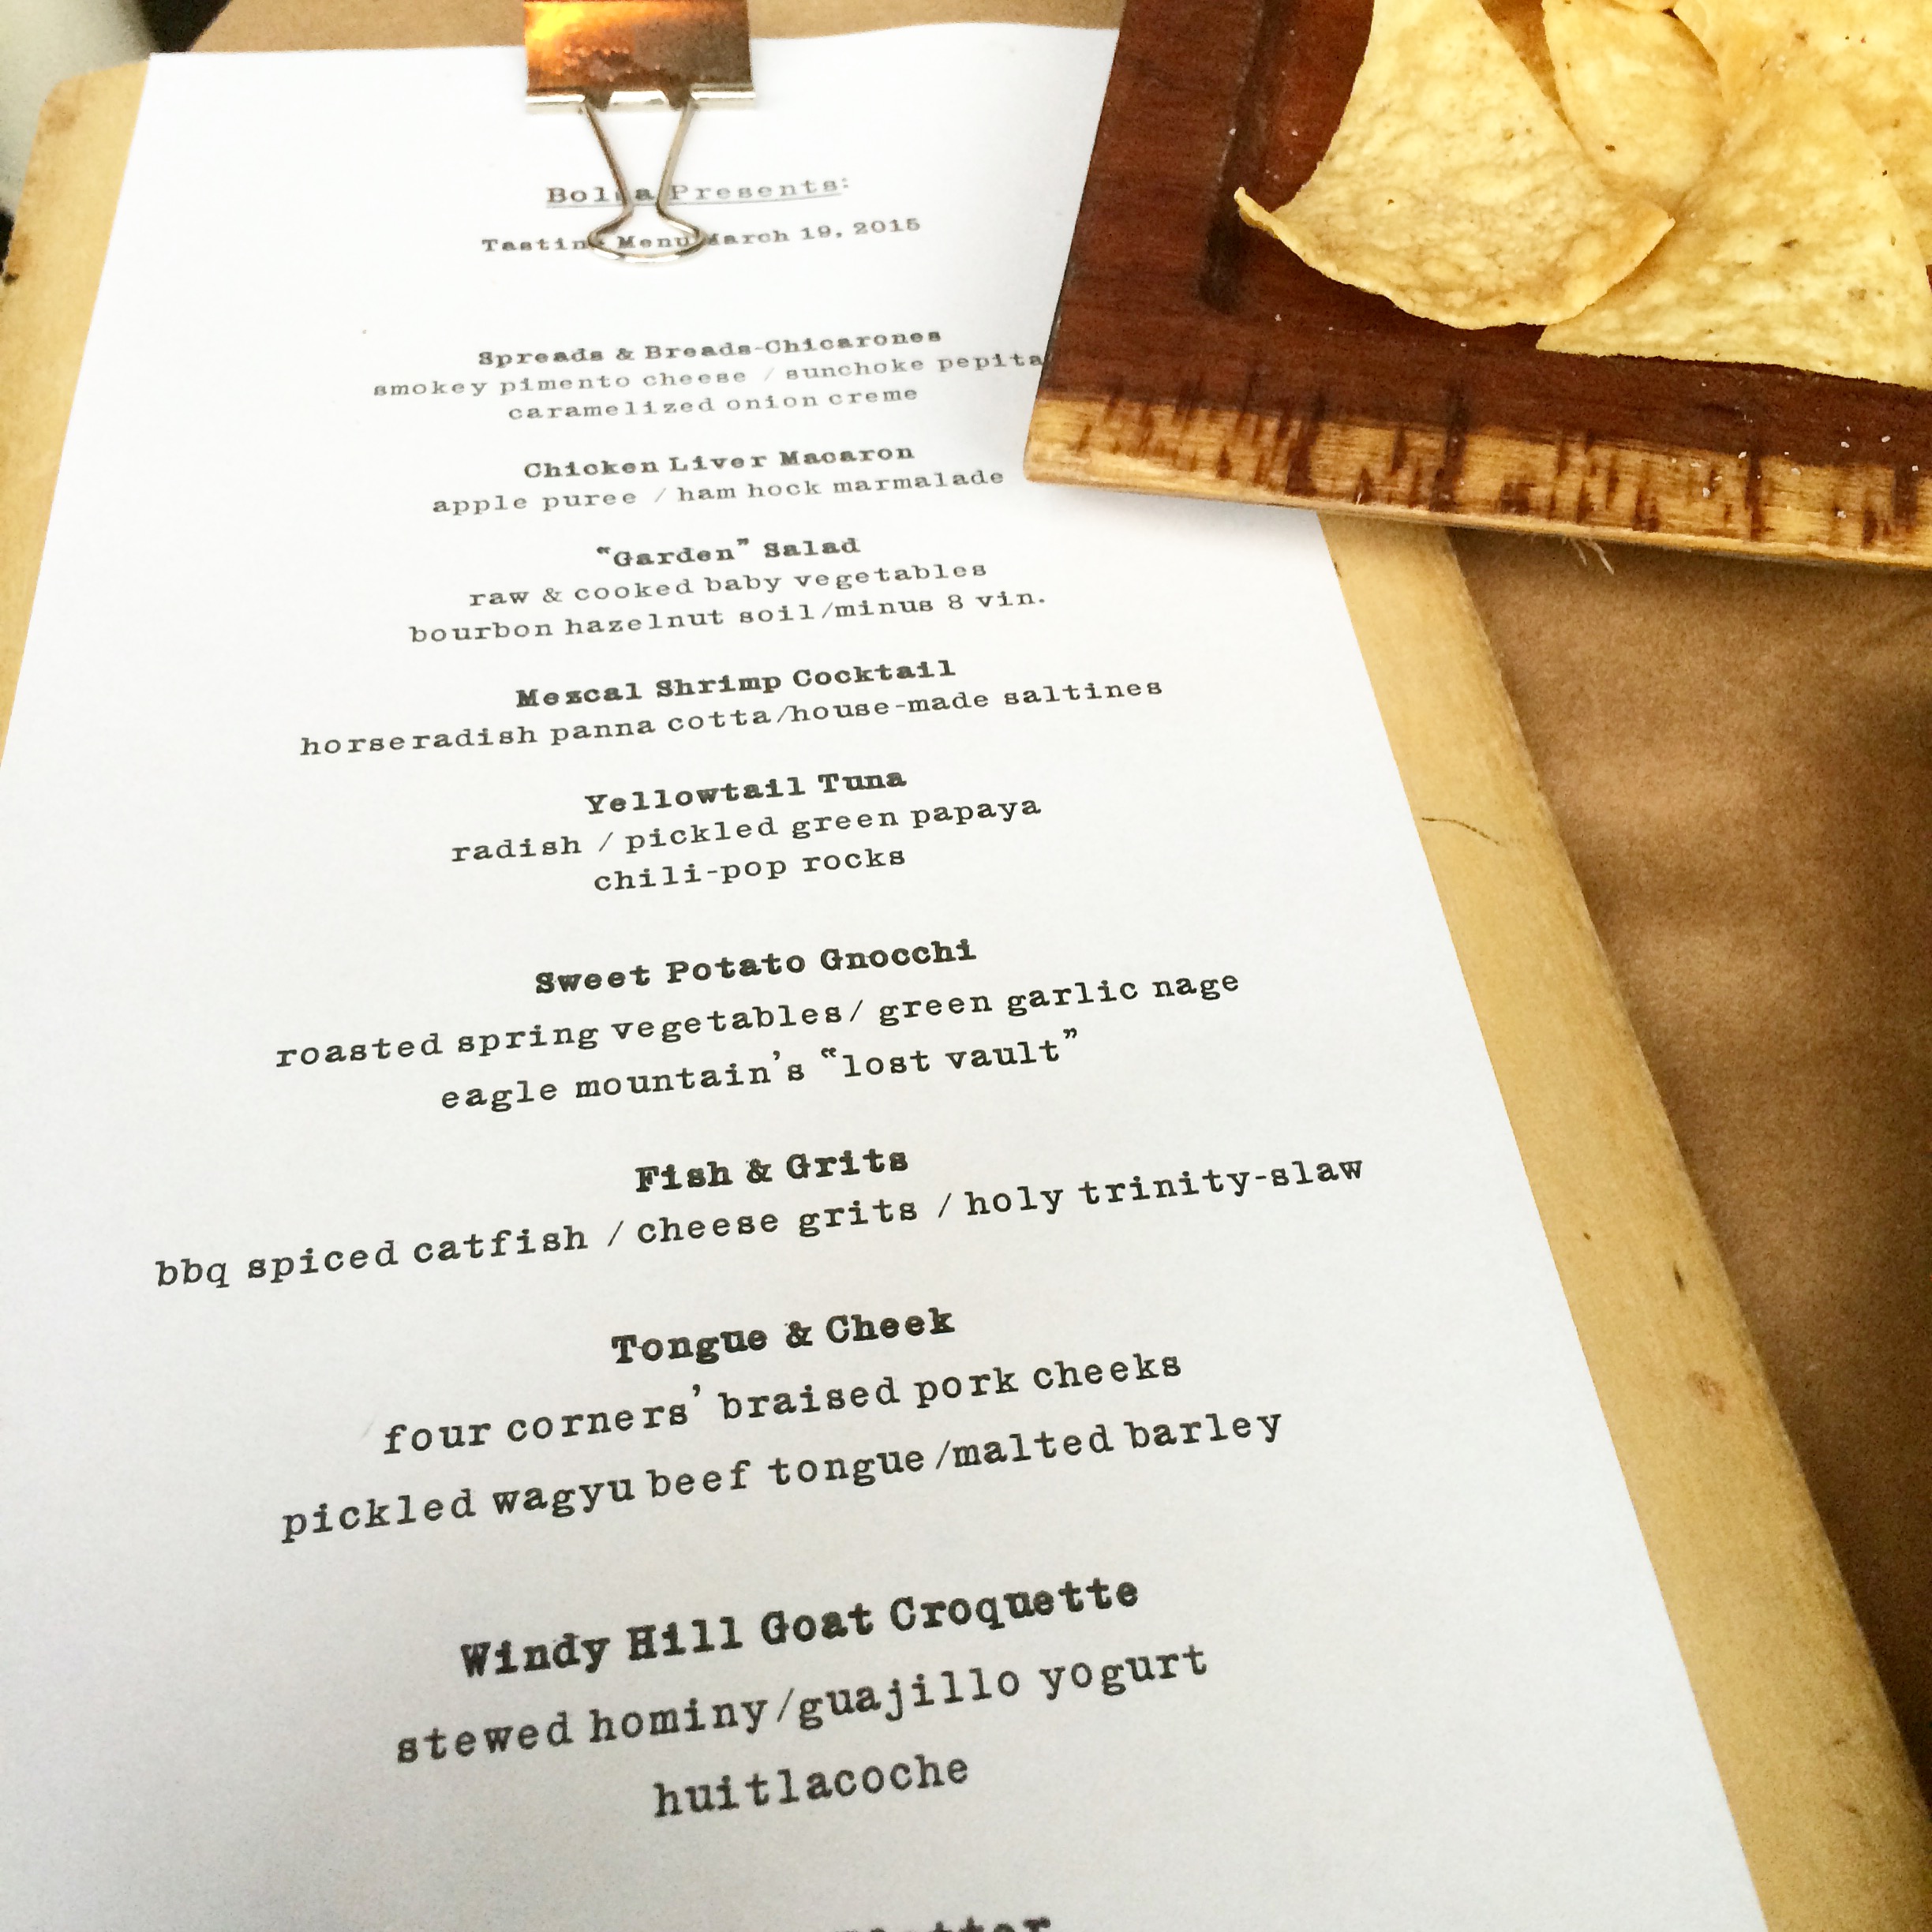 Bolsa Presents:
Tasting Menu March 19, 2015
Spreads & Breads-Chicarones
smokey pimento cheese / sunchoke pepita
caramelized onion creme
Chicken Liver Macaron
apple puree / ham hock marmalade
“Garden” Salad
raw & cooked baby vegetables
bourbon hazelnut soil/minus 8 vin.
Mezcal Shrimp Cocktail
horseradish panna cotta/house-made saltines
Yellowtail Tuna
radish / pickled green papaya
chili-pop rocks
Sweet Potato Gnocchi
roasted spring vegetables/ green garlic nage
eagle mountain’s “lost vault”
Fish & Grits
bbq spiced catfish / cheese grits / holy trinity-slaw
Tongue & Cheek
four corners’ braised pork cheeks
pickled wagyu beef tongue/malted barley
Windy Hill Goat Croquette
stewed hominy/guajillo yogurt
huitlacoche